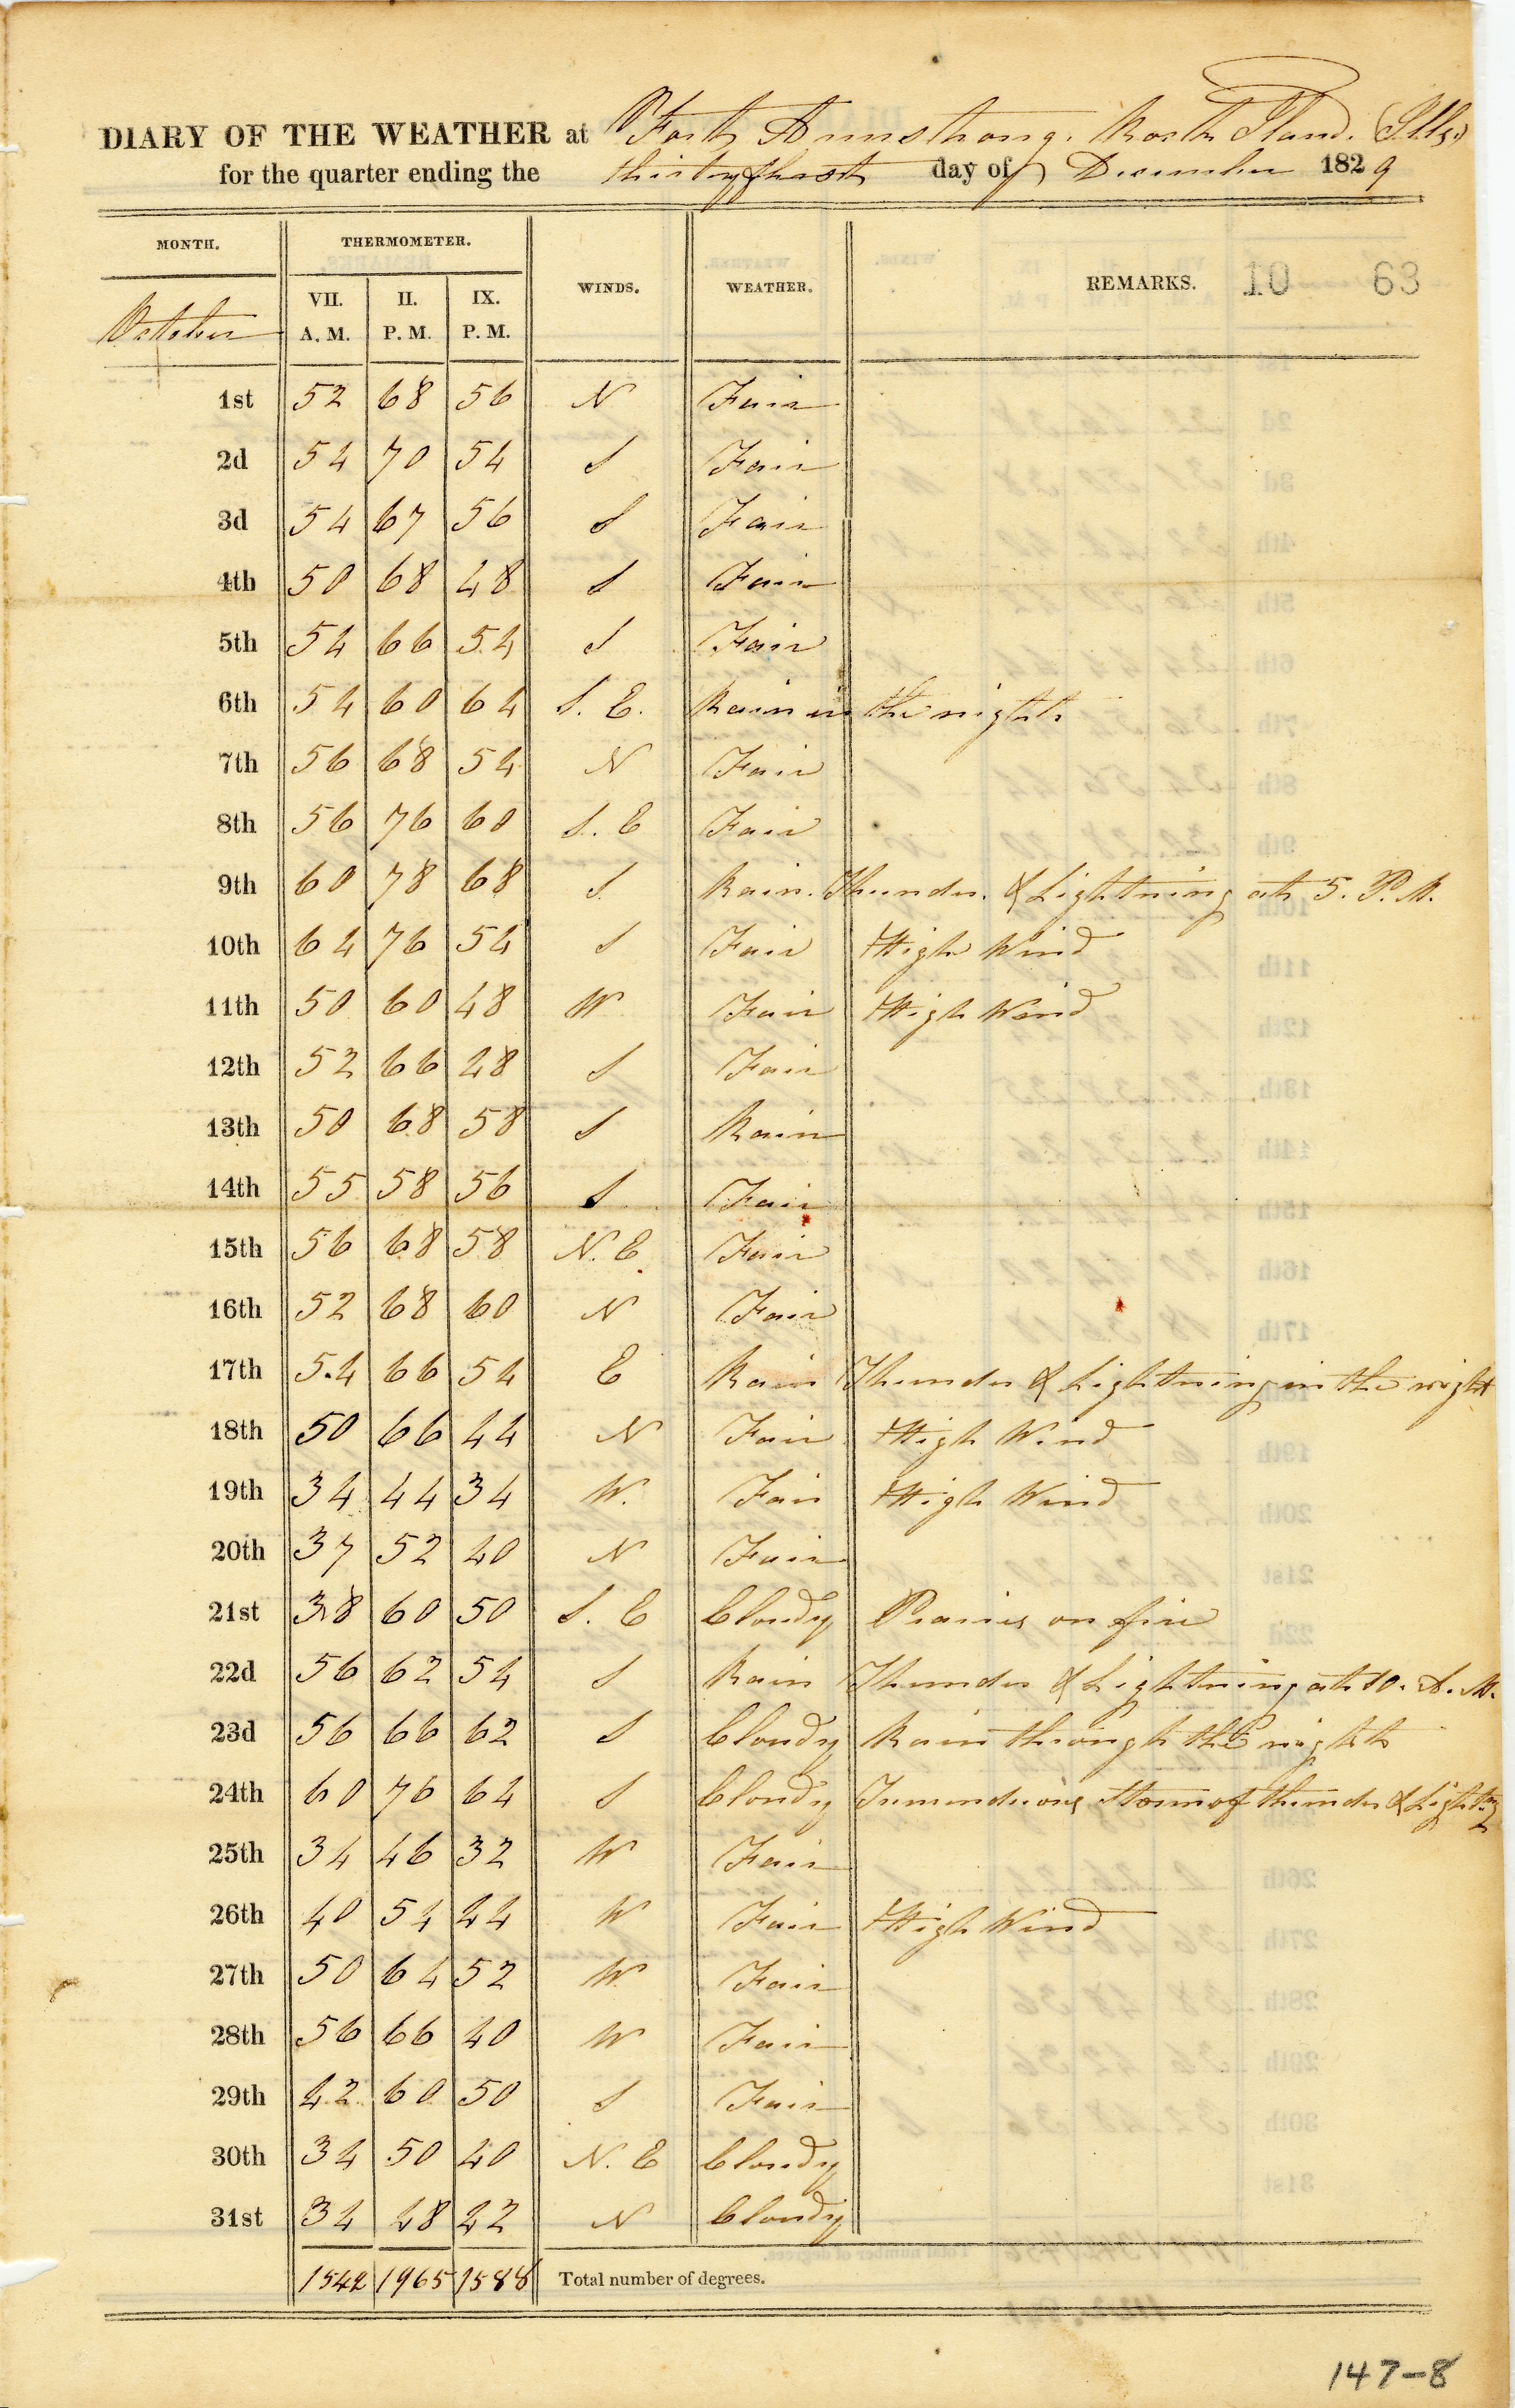 DIARY OF THE WEATHER at Fort Armstrong. Rock Island. (Ills.)
for the quarter ending the thirty first day of December 1829
MONTH. THERMOMETER. WINDS. WEATHER. REMARKS. 10 63
October VII. A.M. II. P.M. IX. P.M.
1st 52 68 56 N Fair
2d 54 70 54 S Fair
3d 54 67 56 S Fair
4th 50 68 48 S Fair
5th 54 66 54 S Fair
6th 54 60 64 S. E. Rain in the night
7th 56 68 54 N Fair
8th 56 76 60 S. E Fair
9th 60 78 68 S. Rain. Thunder. & Lightning at 5. P. M.
10th 64 76 54 S Fair High Wind
11th 50 60 48 W Fair High Wind
12th 52 66 48 S Fair
13th 50 68 58 S Rain
14th 55 58 56 S Fair
15th 56 68 58 N. E Fair
16th 52 68 60 N Fair
17th 54 66 54 E Rain Thunder & Lightning in the night
18th 50 66 44 N Fair High Wind
19th 34 44 34 W. Fair High Wind
20th 37 52 40 N Fair
21st 38 60 50 S. E Cloudy Prairies on fire
22d 56 62 54 S Rain Thunder & Lightning at 10. A. M.
23d 56 66 62 S Cloudy Rain through the night
24th 60 76 64 S Cloudy Tremendious Storm of thunder & Lightng
25th 34 46 32 W Fair
26th 40 54 44 W Fair High Wind
27th 50 64 52 W Fair
28th 56 66 40 W Fair
29th 42 60 50 S Fair
30th 34 50 40 N. E Cloudy
31st 34 48 42 N Cloudy
1542 1965 1588 Total number of degrees.
147-8